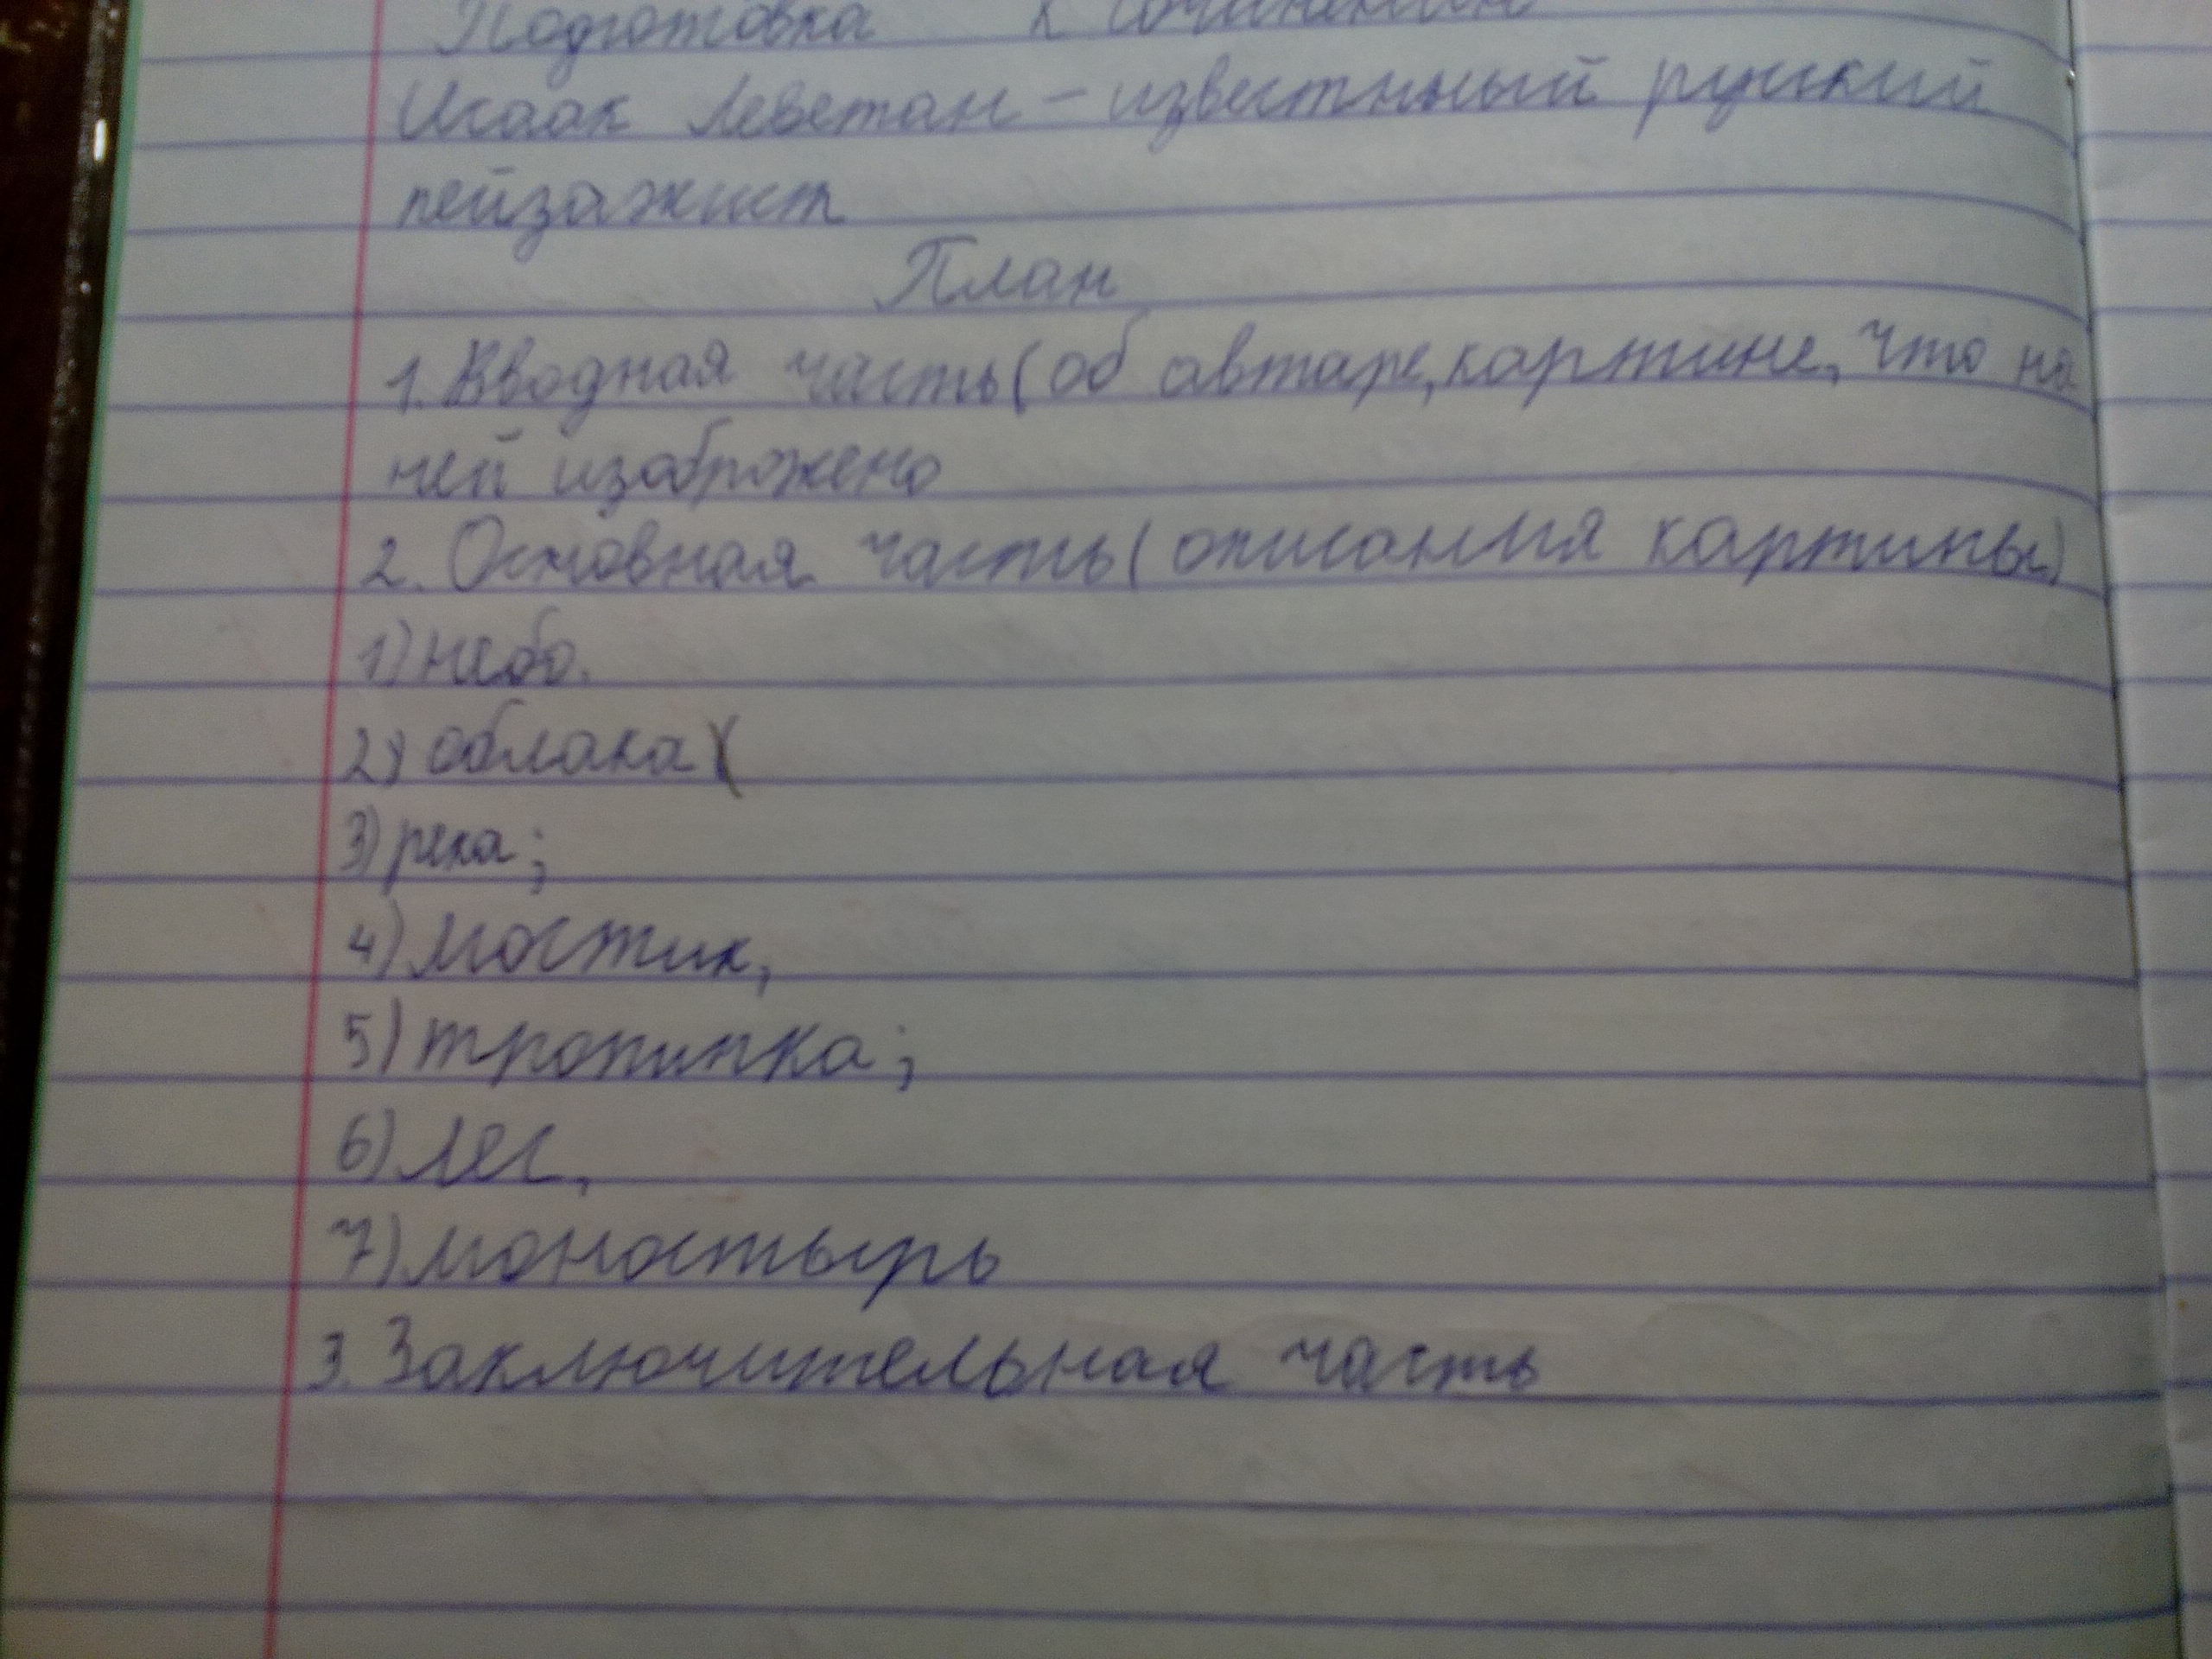 Подготовка к сочинению
Исаак Леветан - известнный руский
пейзажист
План
1. Вводная часть (об автаре, картине, что на
ней изоброжено
2. Основная часть (описания картины)
1) небо.
2) облака
3) река;
4) мостик,
5) тропинка;
6) лес,
7) моностырь
3. Заключительная часть